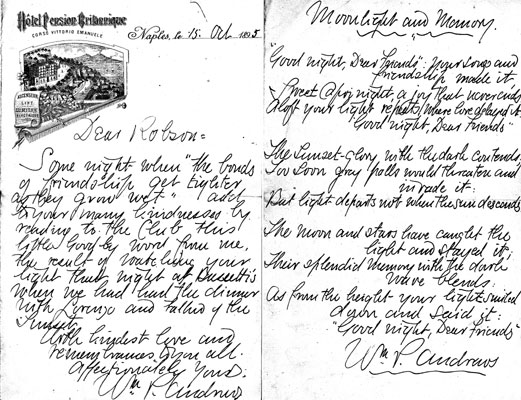 Hôtel Pension Britannique
CORSO VITTORIO EMANUELE
Naples, le 15 Oct 1895
ASCENSEUR
LIFT
Dear Robson =
Some night when "the bonds
of friendship get tighter
as they grow wet" add
to your many kindnesses by
reading to the Club this
little good by word from me,
the result of watching your
light that night at
when we had had the dinner
with Lorenzo and talked of the
With kindest love and
remembrances to you all.
Affectionately yours.
Wm P. Andrews
Moonlight and Memory.
"Good night, Dear friends": your song and
friendship made it
Sweet night, a joy that never ends
Aloft your light repeats,
"Good night, Dear Friends"
The Sunset-Glory with the dark contends,
Too Soon gray palls would threaten and
invade it:
But light departs not when the sun descends
The moon and stars have caught the
light and stayed it;
Their splendid Memory with the dark
wave blends:
As from the height your light smiled
down and said it:
"Good night, Dear Friends"
Wm P. Andrews